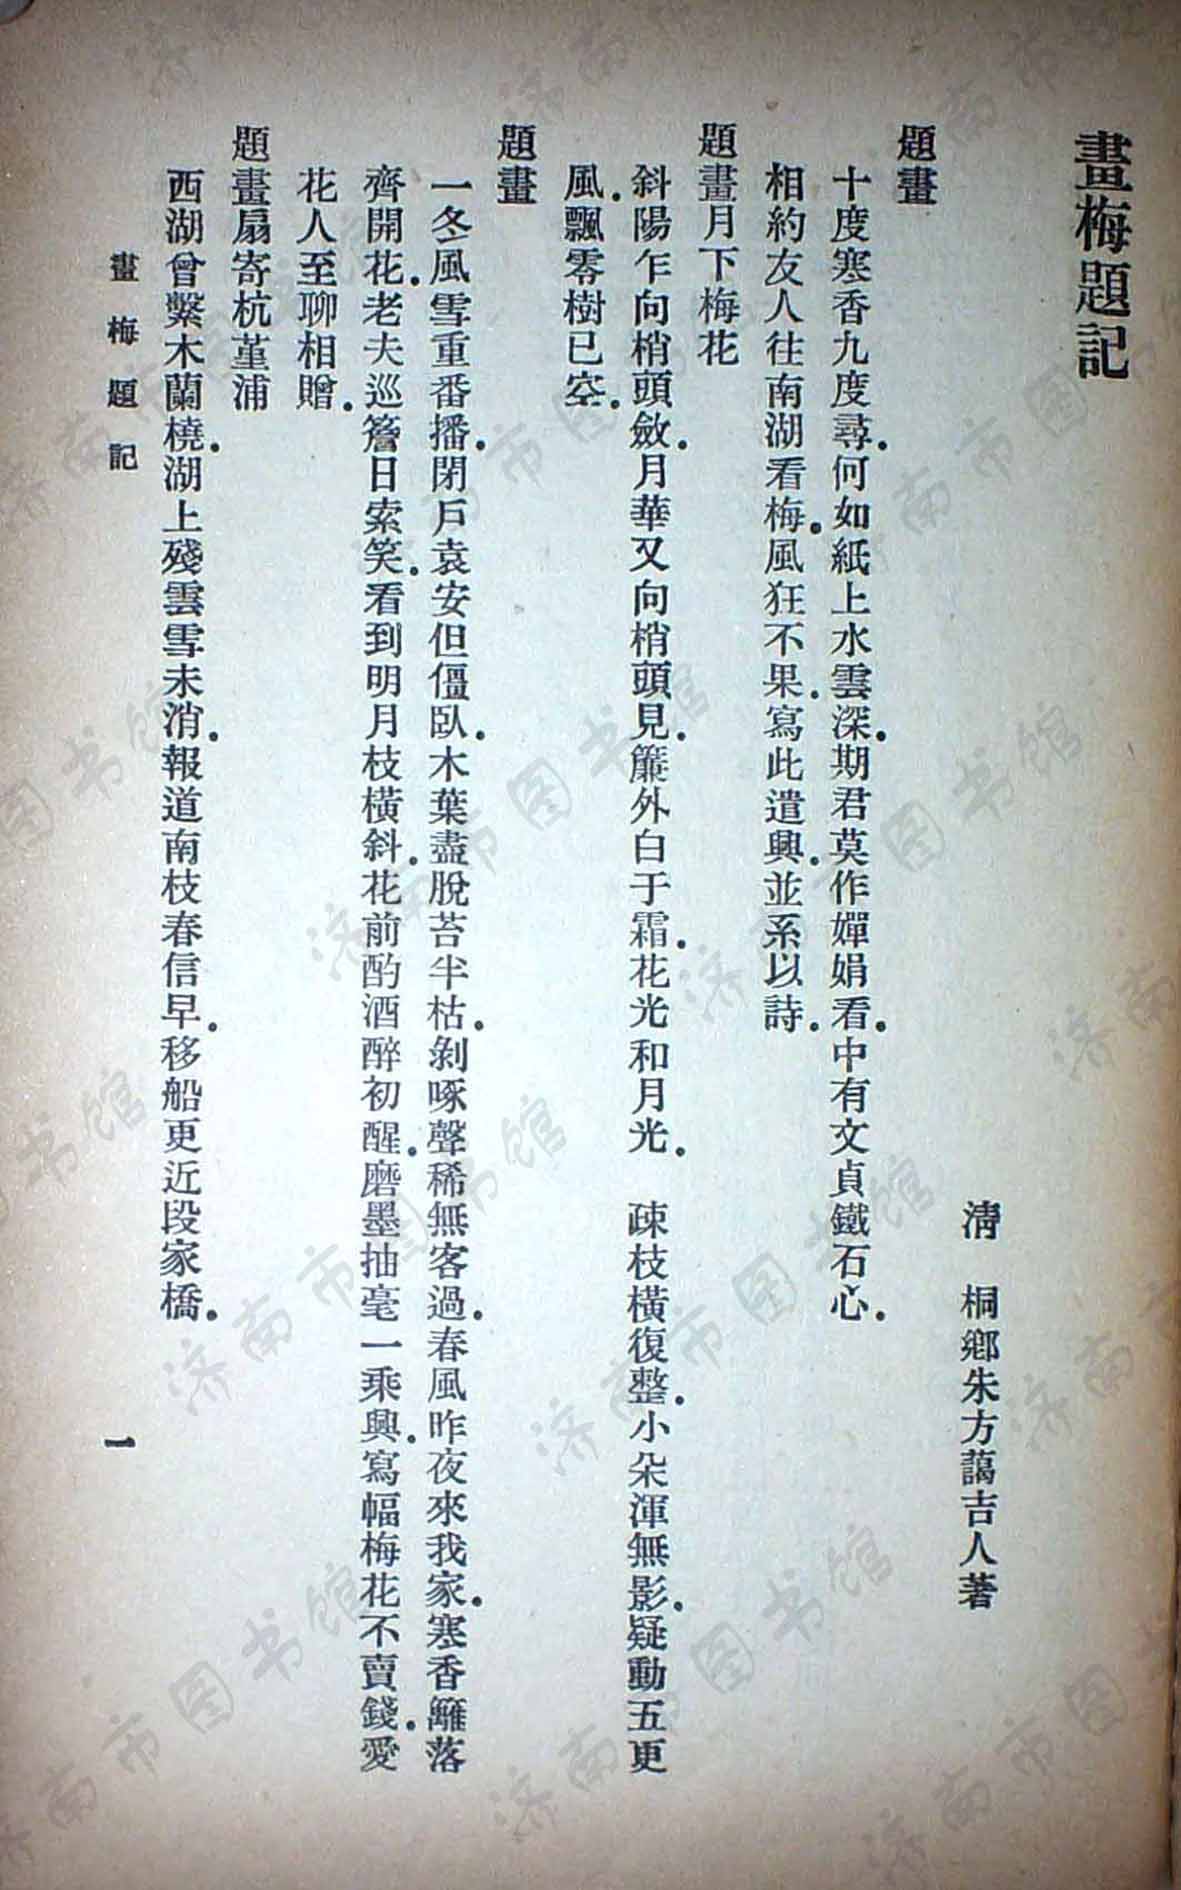 畫梅題記
清　桐鄉朱方藹吉人著
題畫
十度寒香九度尋.何如紙上水雲深.期君莫作嬋娟看.中有文貞鐵石心.
相約友人往南湖看梅.風狂不果.寫此遣興.並系以詩.
題畫月下梅花
斜陽乍向梢頭斂.月華又向梢頭見.簾外白于霜.花光和月光.　疎枝橫復整.小朵渾無影.疑動五更
風.飄零樹已空.
題畫
一冬風雪重番播.閉戶袁安但僵臥.木葉盡脫苔半枯.剝啄聲稀無客過.春風昨夜來我家.寒香籬落
齊開花.老夫巡簷日索笑.看到明月枝橫斜.花前酌酒醉初醒.磨墨抽毫一乘興.寫幅梅花不賣錢.愛
花人至聊相贈.
題畫扇寄杭堇浦
西湖曾繫木蘭橈.湖上殘雲雪未消.報道南枝春信早.移船更近段家橋.
畫梅題記
一
济南市图书馆